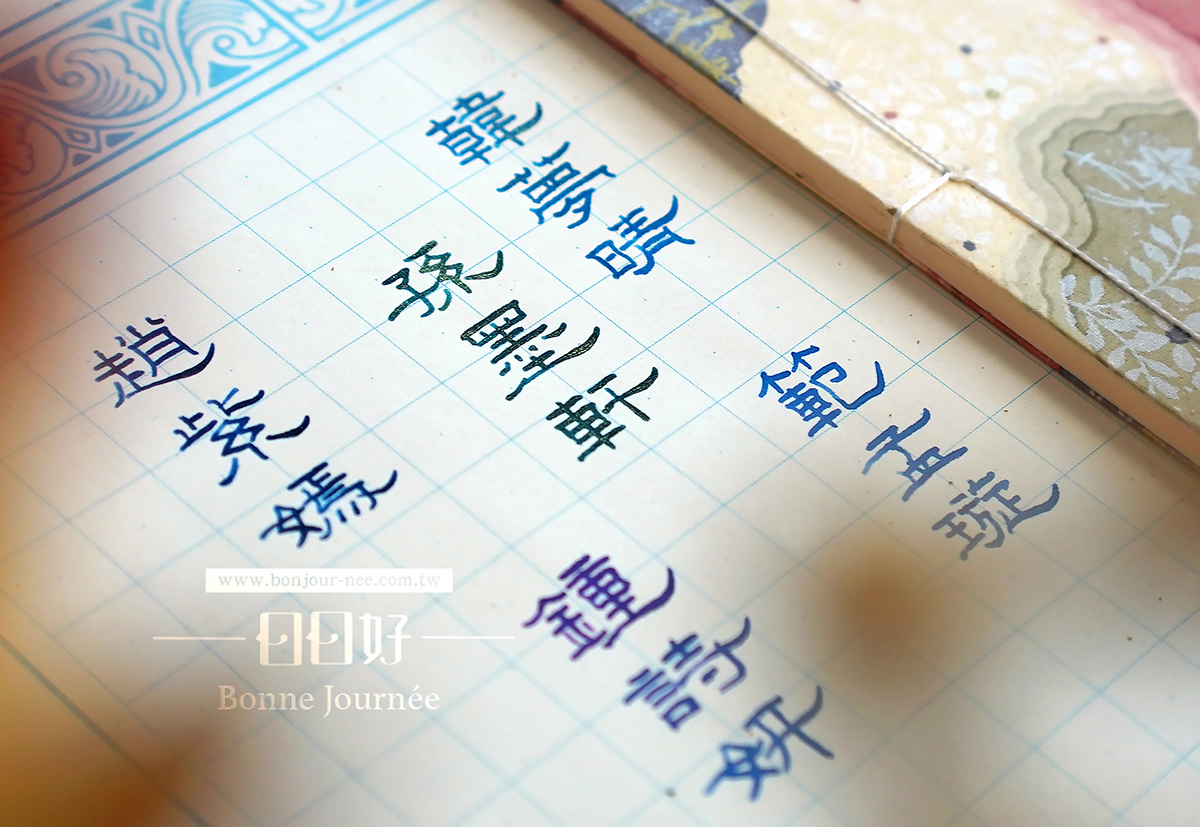 韓夢晴
孫墨軒
趙紫嫣
範孟璇
鍾詩妍
www.bonjour-nee.com.tw
日日好
Bonne Journée